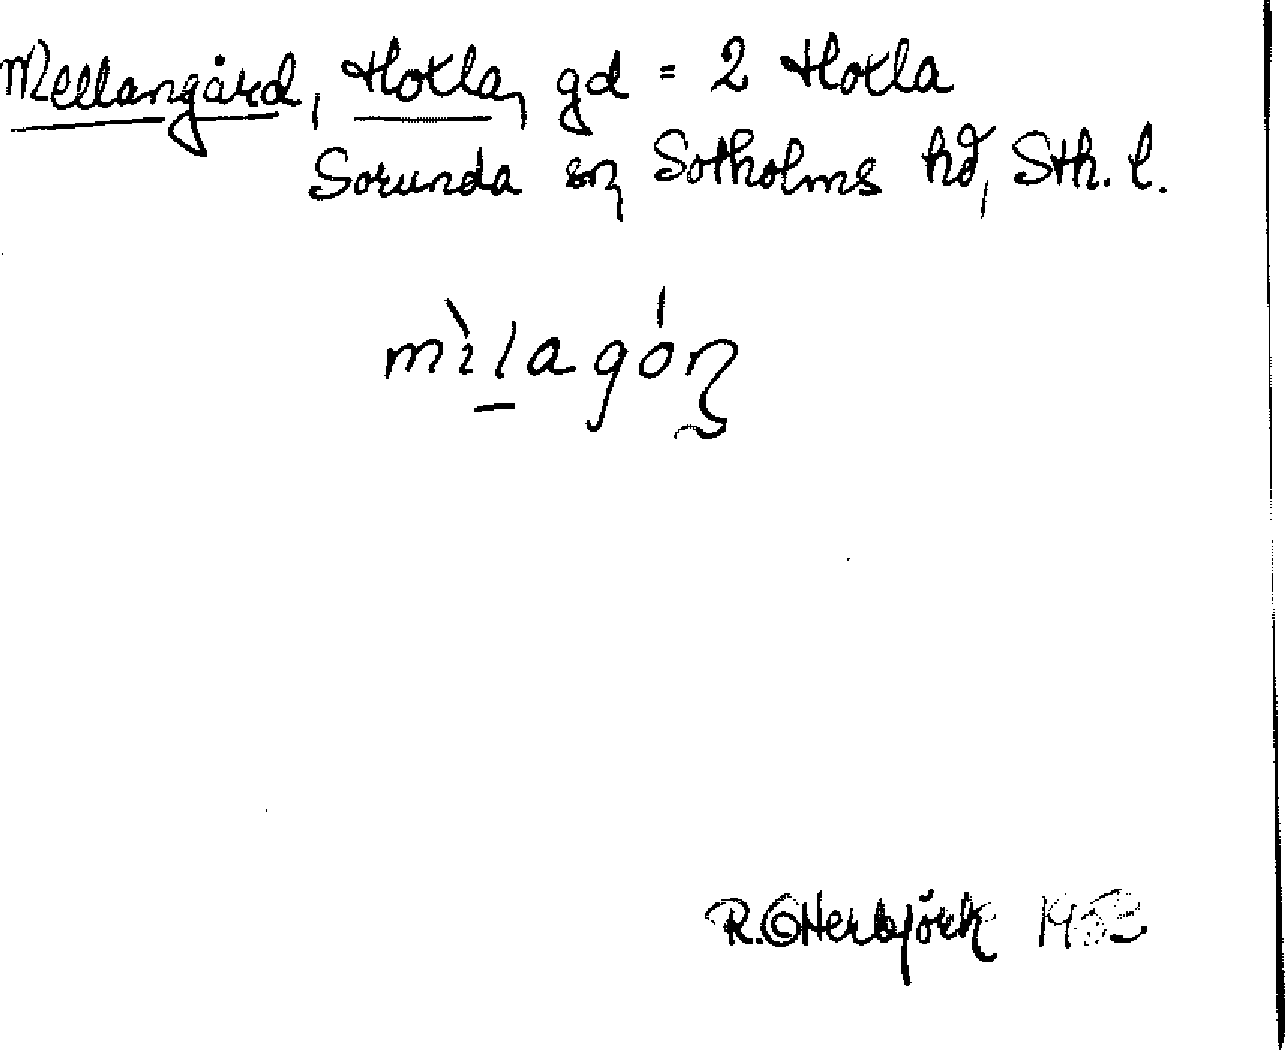 Mellangård, Hoxla, gd = 2 Hoxla
Sorunda sn, Sotholms hd, Sth. l.
R. Otterbjörk 1953